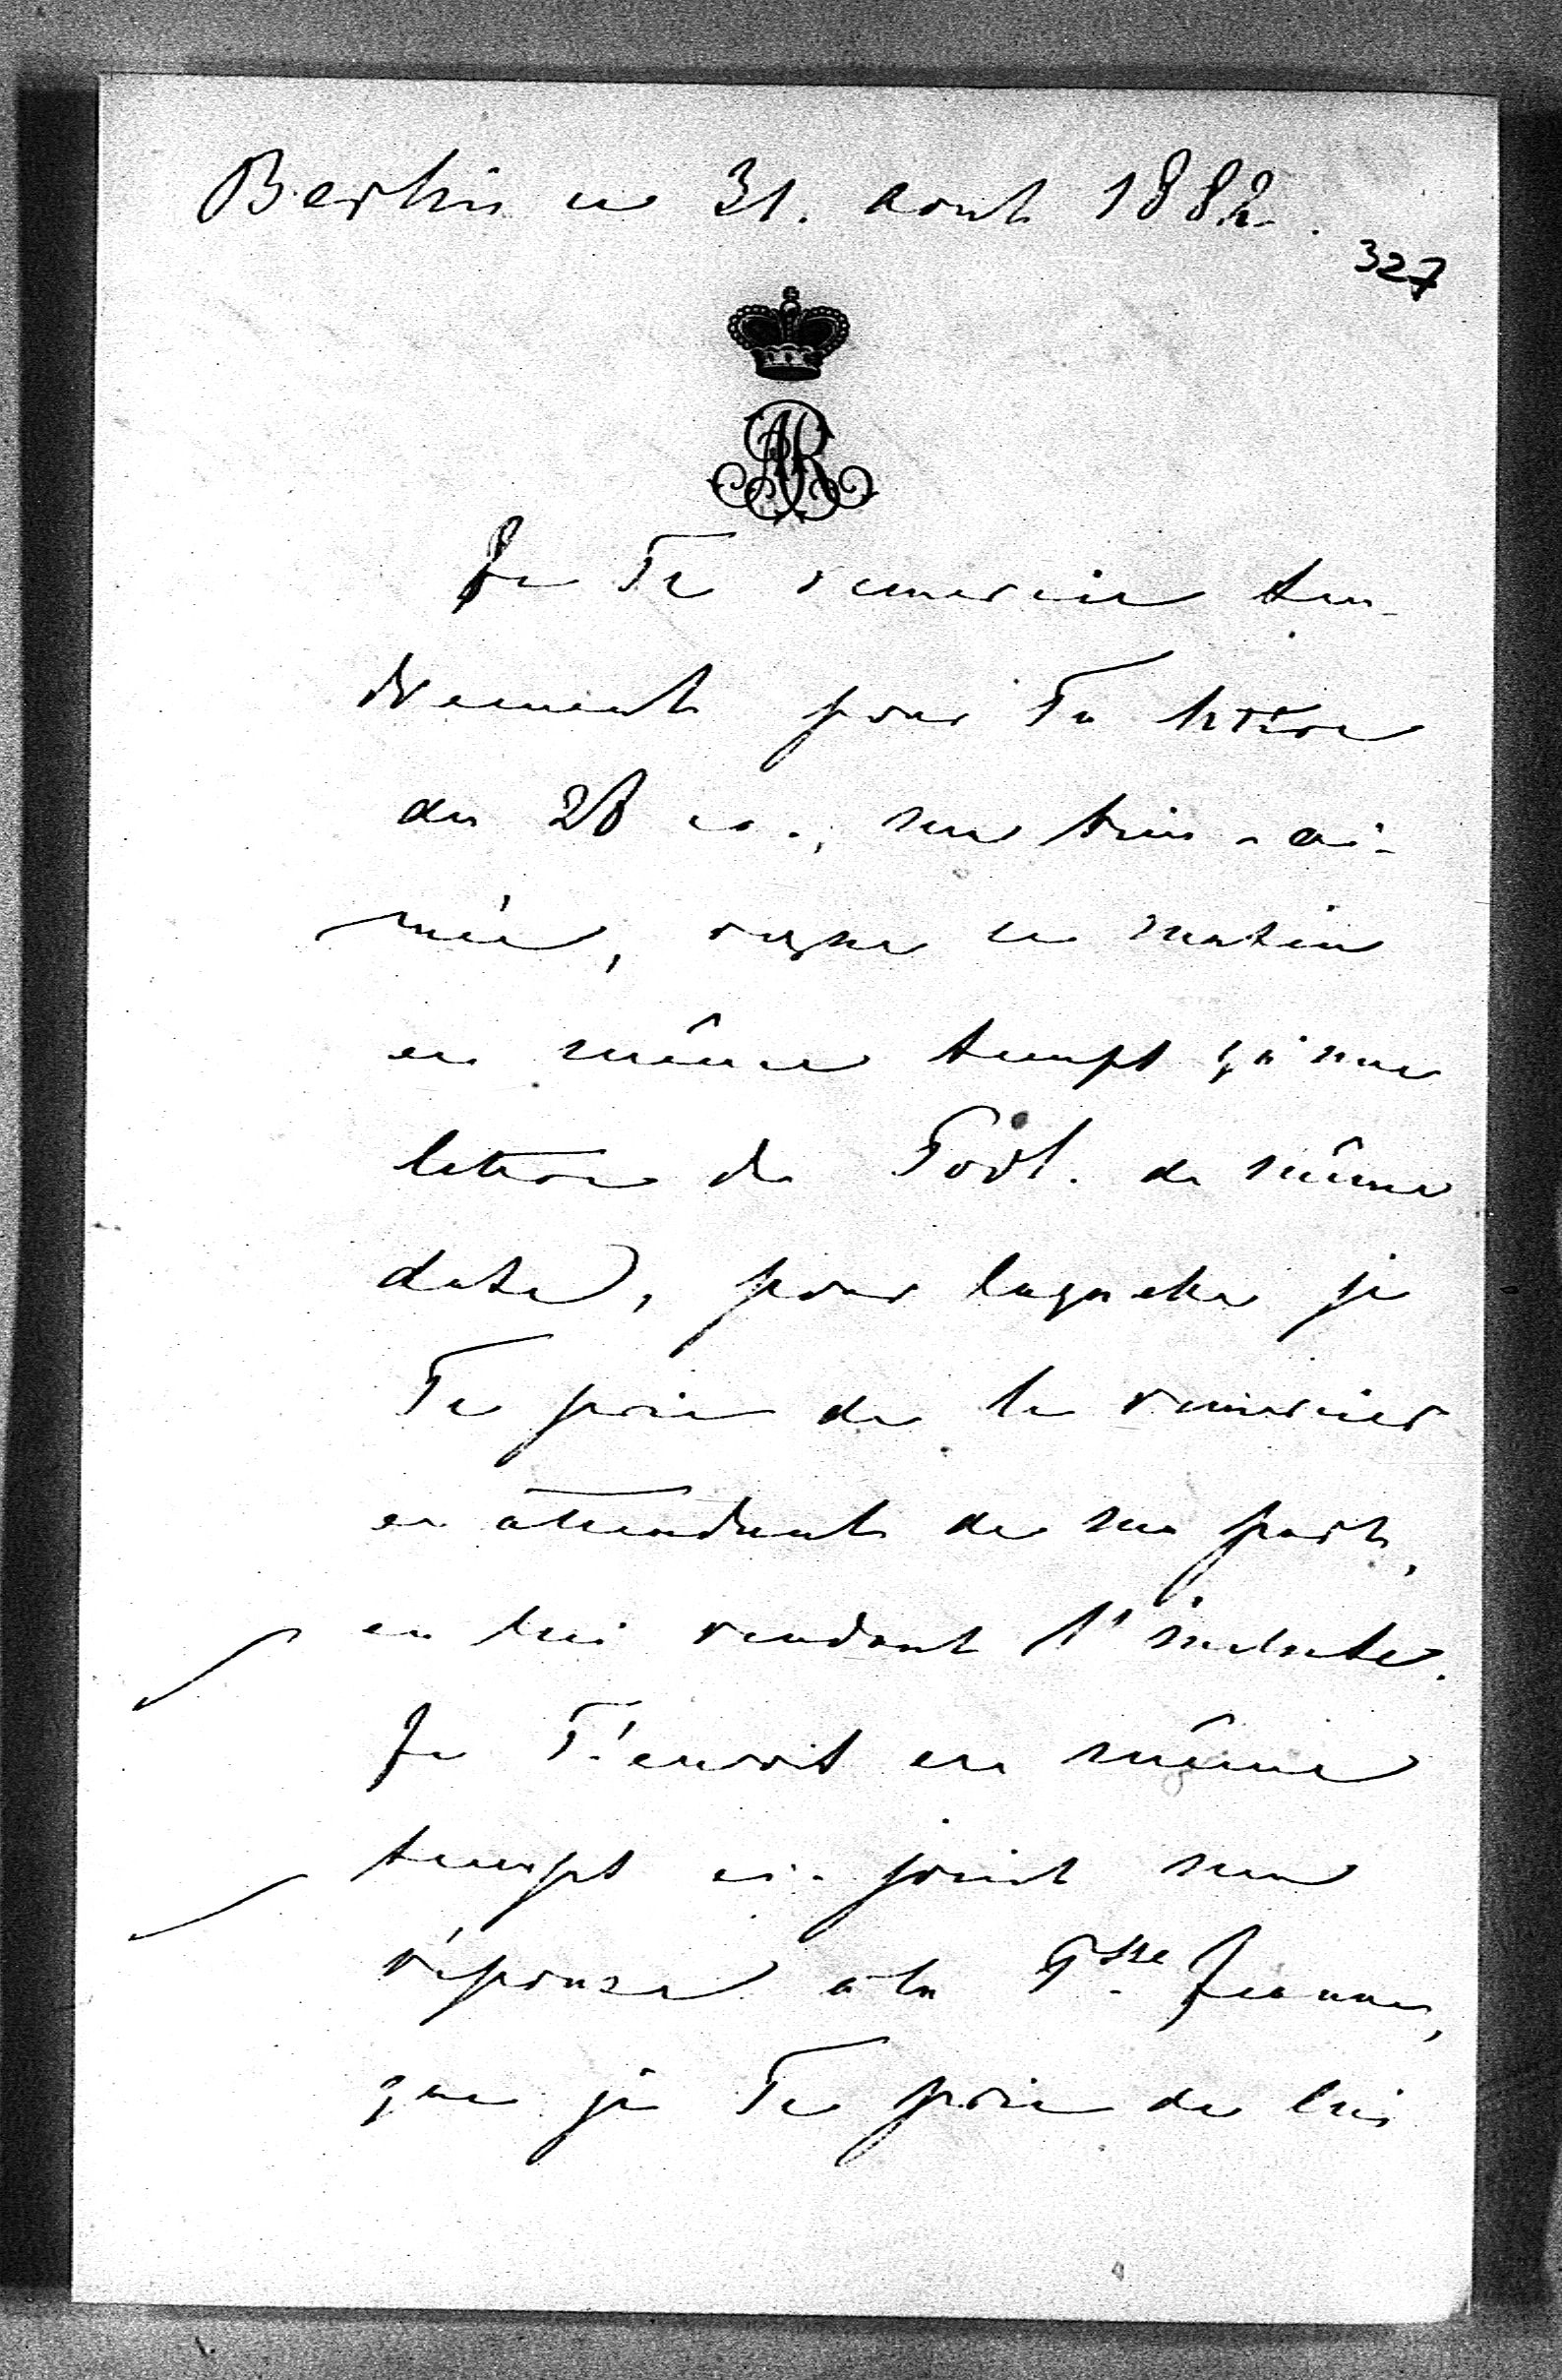 Berlin ce 31. aout 1882.
327
AR
Je Te remercie ten-
drement pour Ta lettre
du 28 ct., ma bien-ai-
mée, reçue ce matin
en même temps qu'une
lettre de de même
date, pour laquelle je
Te prie de le remercier
en attendant de ma part,
en lui rendant l'incluse.
Je T'envois en même
temps ci-joint ma
réponse à la Psse Jeanne,
que je Te prie de lui